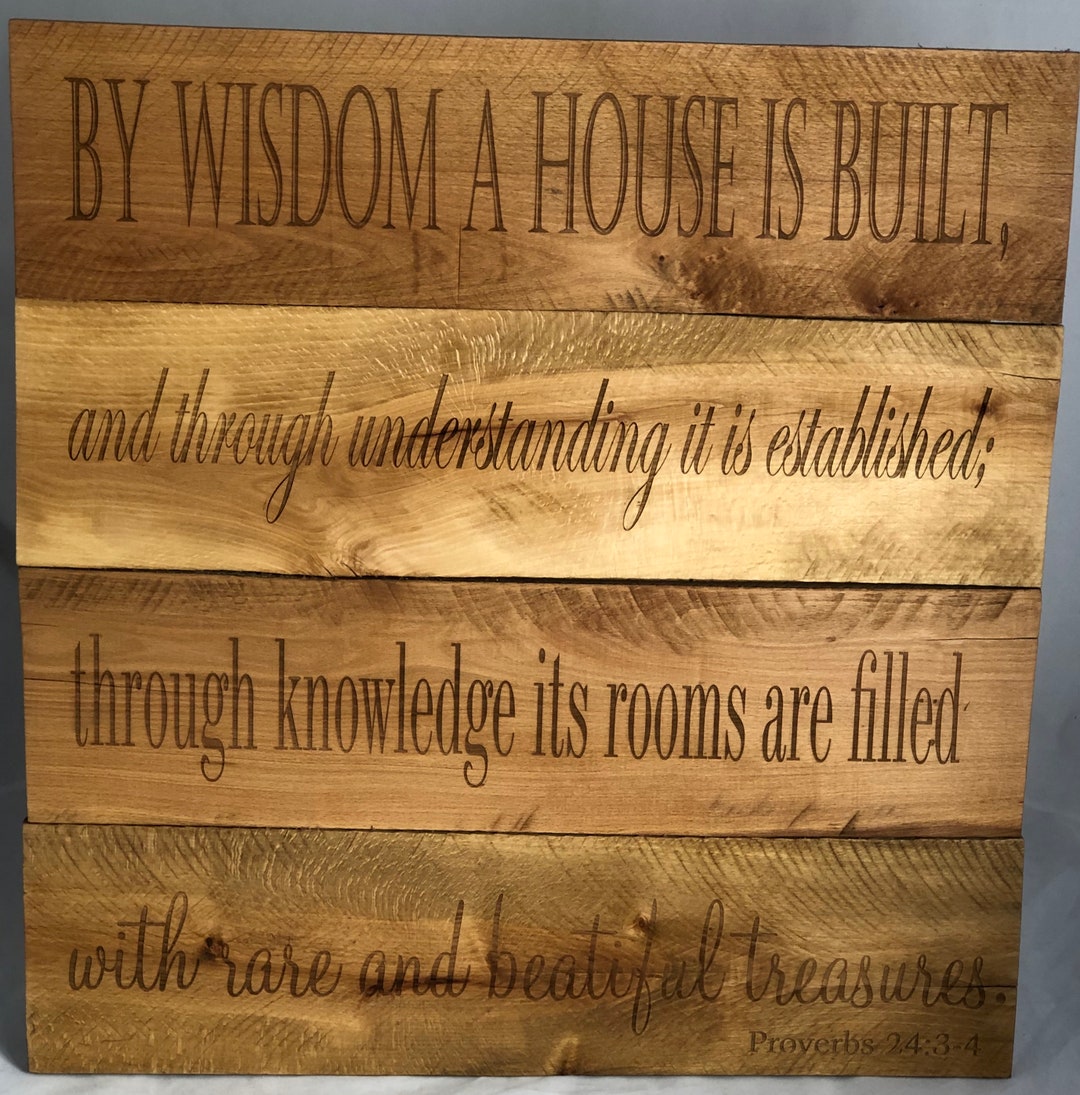 BY WISDOM A HOUSE IS BUILT,
and through understanding it is established;
through knowledge its rooms are filled
with rare and beatiful treasures.
Proverbs 24:3-4